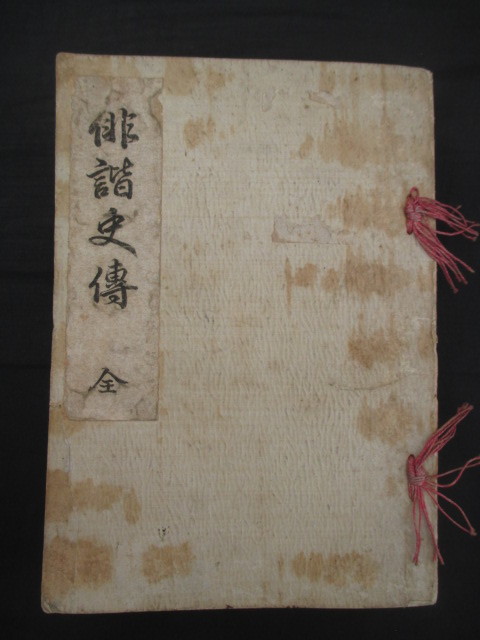 俳諧史傳 全